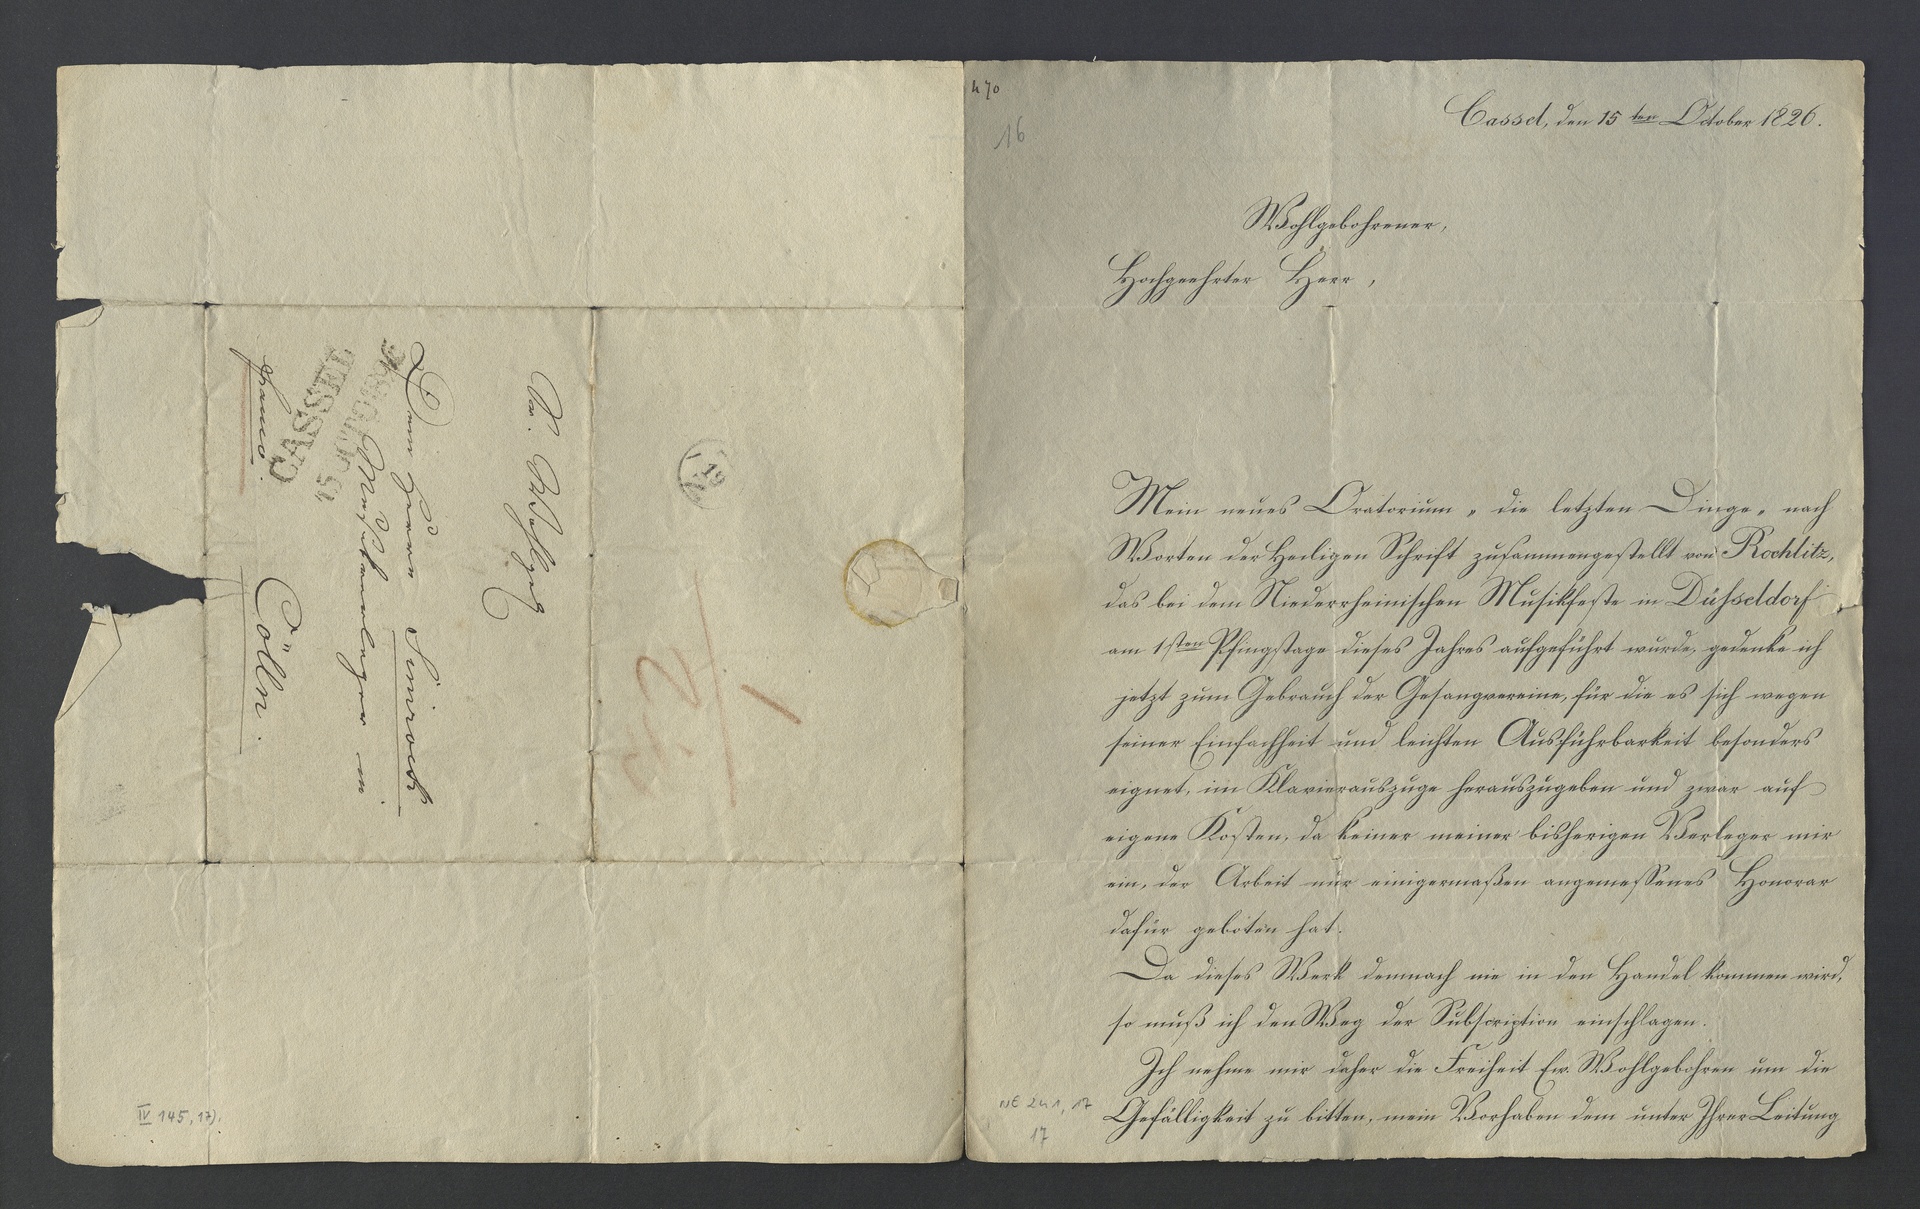 470
16
Cassel, den 15ten October 1826.
Wohlgebohrener,
Hochgeehrter Herr,
Mein neues Oratorium „die letzten Dinge„ nach
Worten der Heiligen Schrift zusammengestellt von Rochlitz,
das bei dem Niederrheinischen Musikfeste in Düsseldorf
am 1sten Pfingstage dieses Jahres aufgeführt wurde, gedenke ich
jetzt zum Gebrauch der Gesangvereine, für die es sich wegen
seiner Einfachheit und leichten Ausführbarkeit besonders
eignet, im Klavierauszuge herauszugeben und zwar auf
eigene Kosten, da keiner meiner bisherigen Verleger mir
ein, der Arbeit nur einigermaßen angemessenes Honorar
dafür geboten hat.
Da dieses Werk demnach nie in den Handel kommen wird,
so muß ich den Weg der Subscription einschlagen.
Ich nehme mir daher die Freiheit Ew. Wohlgebohren um die
Gefälligkeit zu bitten, mein Vorhaben dem unter Ihrer Leitung
NE 241, 17
17
Dem Herrn Simrock
Musikverleger in
Cölln.
franco.
CASSEL
15 OCTOBR
IV 145, 17).